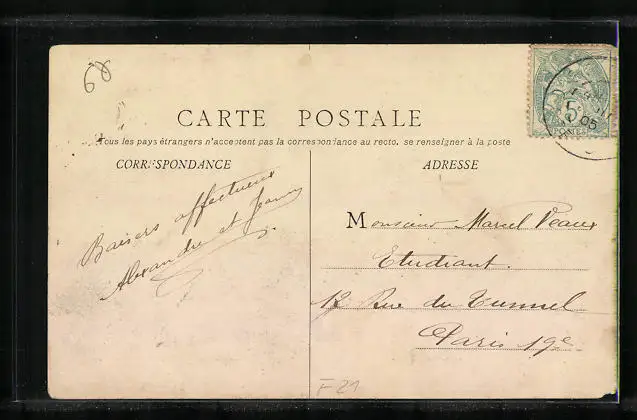 68
CARTE POSTALE
Tous les pays étrangers n'acceptent pas la correspondance au recto. se renseigner à la poste
CORRESPONDANCE
ADRESSE
5
05
Baisers affectueux
Alexandre et Jeanne
Monsieur Marcel Peaux
Etudiant.
12 Rue du Tunnel
Paris 19e
F21